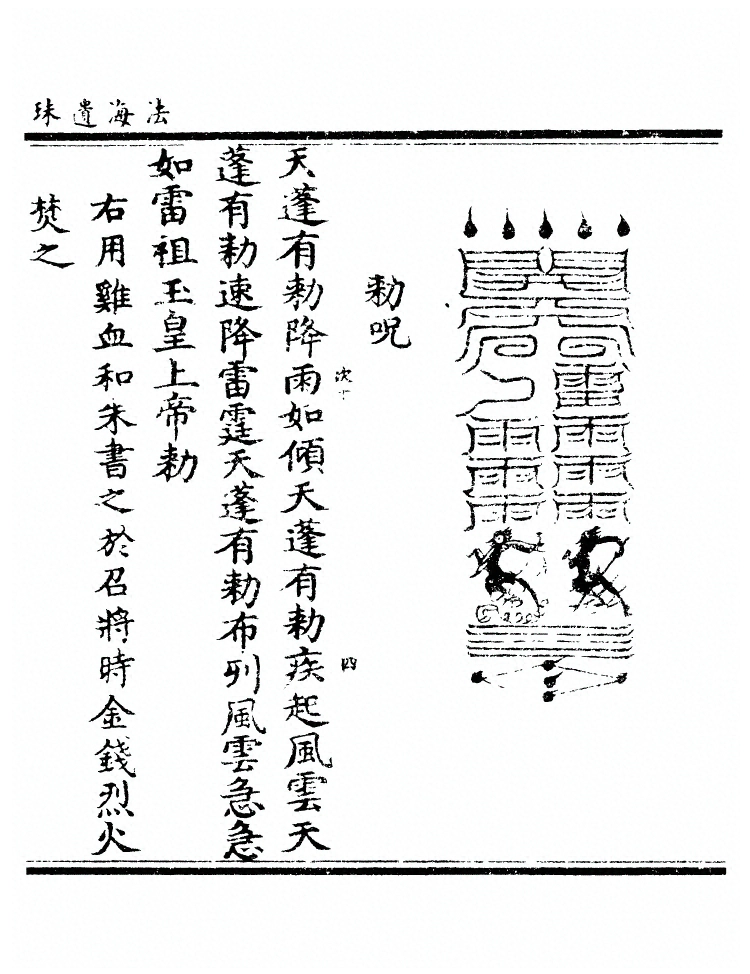 法海遺珠
敕呪
沈十 四
天蓬有敕降雨如傾天蓬有敕疾起風雲天
蓬有敕速降雷霆天蓬有敕布列風雲急急
如雷祖玉皇上帝敕
右用雞血和朱書之於召將時金錢烈火
焚之